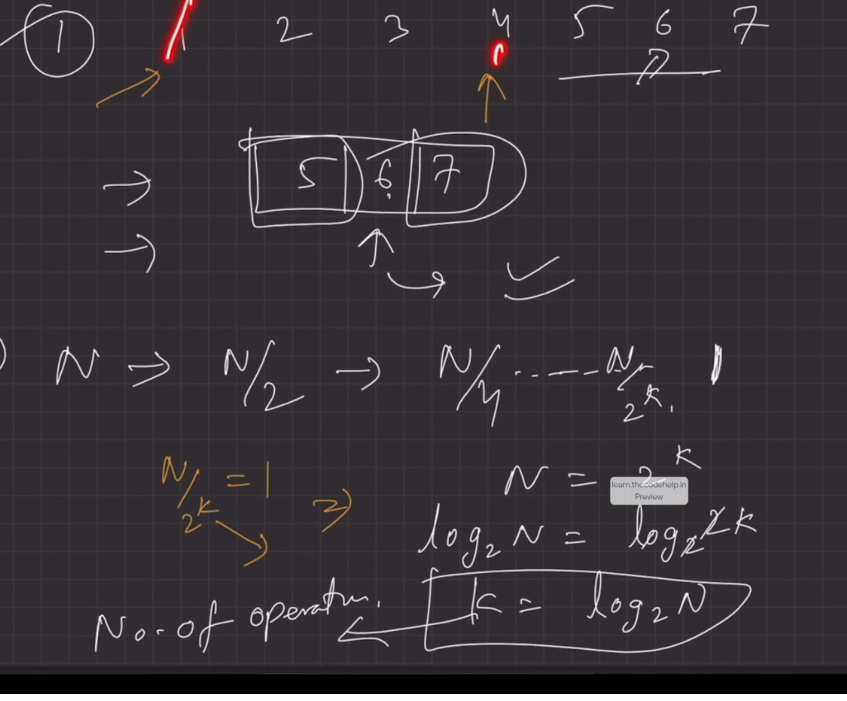 ① 1 2 3 4 5 6 7
5 6 7
N → N/2 → N/4 ------ N/2^k, 1
N/2^k = 1
N = 2^k
learn.thecodehelp.in
Preview
log₂ N = log₂ 2^k
k = log₂ N
No. of operatn.